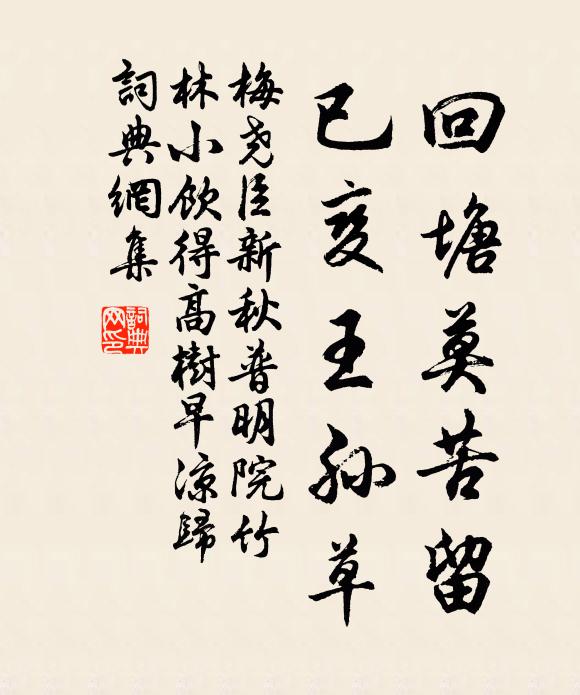 回塘莫苦留
已变王孙草
梅尧臣新秋普明院竹
林小饮得高樹早凉歸
詞典網集
詞典网印